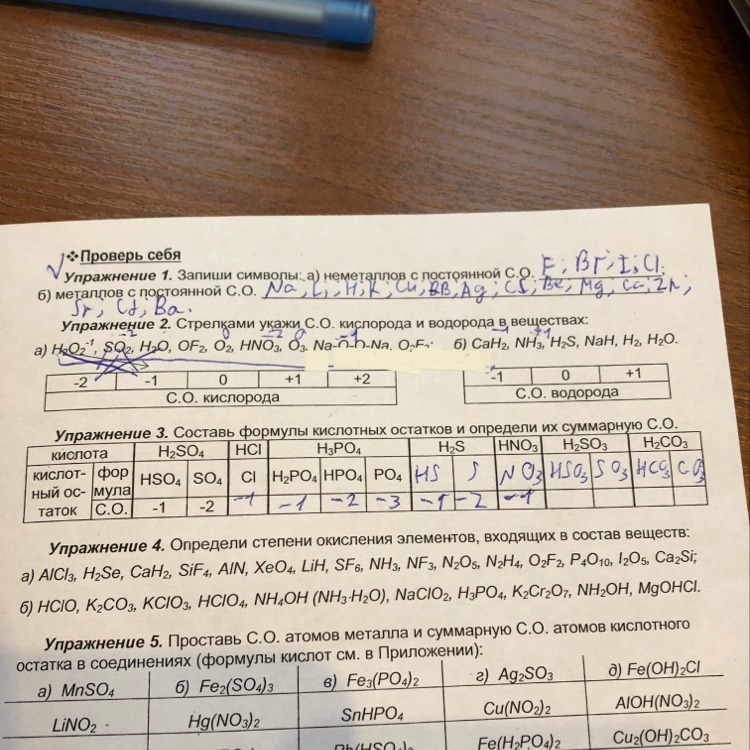 ❖Проверь себя
Упражнение 1. Запиши символы: а) неметаллов с постоянной С.О. F; Br; I; Cl;
б) металлов с постоянной С.О. Na; Li; H; K; Cu; Ag; Cs; Be; Mg; Ca; Zn;
Sr; Cd; Ba.
Упражнение 2. Стрелками укажи С.О. кислорода и водорода в веществах:
-2 0 -2 0 -1 -1 +1
а) H₂O₂⁻¹, SO₂, H₂O, OF₂, O₂, HNO₃, O₃, Na-O-O-Na, O₂F₂. б) CaH₂, NH₃, H₂S, NaH, H₂, H₂O.
-2 -1 0 +1 +2 -1 0 +1
С.О. кислорода С.О. водорода
Упражнение 3. Составь формулы кислотных остатков и определи их суммарную С.О.
кислота H₂SO₄ HCl H₃PO₄ H₂S HNO₃ H₂SO₃ H₂CO₃
кислот- фор HSO₄ SO₄ Cl H₂PO₄ HPO₄ PO₄ HS S NO₃ HSO₃ SO₃ HCO₃ CO₃
ный ос- мула
таток С.О. -1 -2 -1 -1 -2 -3 -1 -2 -1
Упражнение 4. Определи степени окисления элементов, входящих в состав веществ:
а) AlCl₃, H₂Se, CaH₂, SiF₄, AlN, XeO₄, LiH, SF₆, NH₃, NF₃, N₂O₅, N₂H₄, O₂F₂, P₄O₁₀, I₂O₅, Ca₂Si;
б) HClO, K₂CO₃, KClO₃, HClO₄, NH₄OH (NH₃·H₂O), NaClO₂, H₃PO₄, K₂Cr₂O₇, NH₂OH, MgOHCl.
Упражнение 5. Проставь С.О. атомов металла и суммарную С.О. атомов кислотного
остатка в соединениях (формулы кислот см. в Приложении):
а) MnSO₄ б) Fe₂(SO₄)₃ в) Fe₃(PO₄)₂ г) Ag₂SO₃ д) Fe(OH)₂Cl
LiNO₂ Hg(NO₃)₂ SnHPO₄ Cu(NO₂)₂ AlOH(NO₃)₂
Pb(HSO₄)₂ Fe(H₂PO₄)₂ Cu₂(OH)₂CO₃